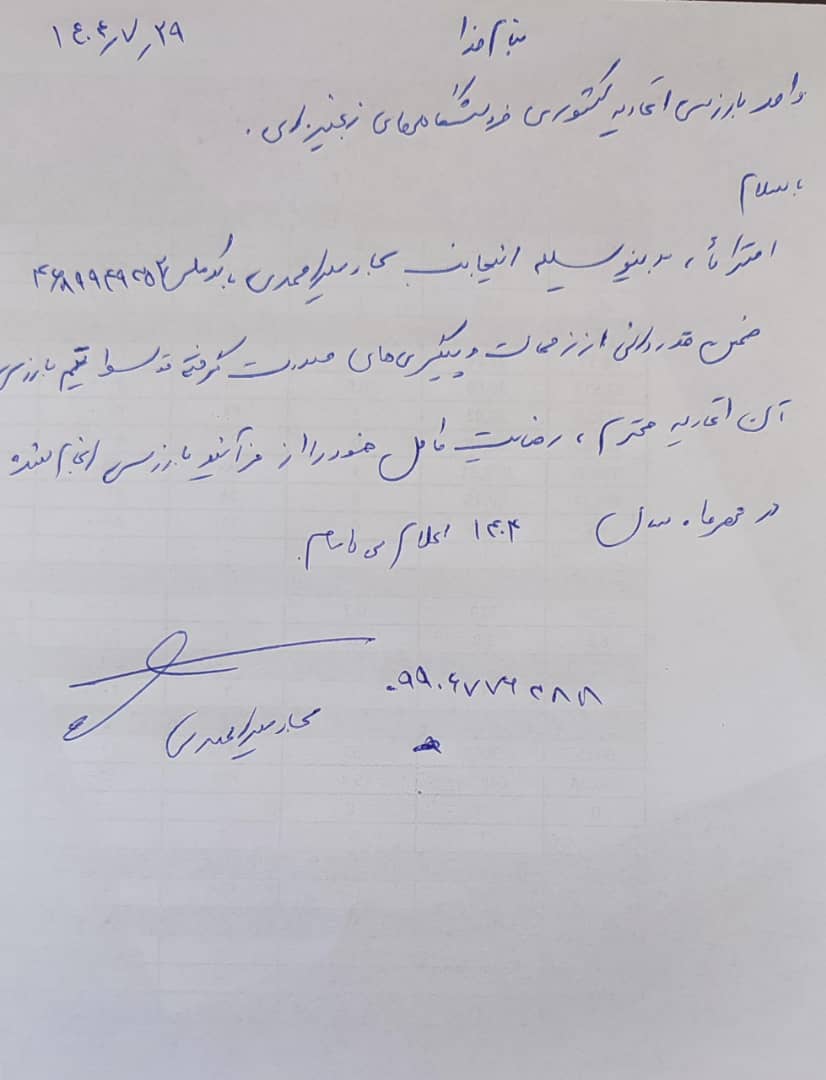 بنام خدا
۱۴۰۴٫۷٫۲۹
واحد بازرسی اتحادیه کشوری فروشگاه‌های زنجیره‌ای.
با سلام
احتراماً، بدینوسیله اینجانب سجاد میرمحمدی با کد ملی
ضمن قدردانی از زحمات و پیگیری‌های صورت گرفته توسط تیم بازرسی
آن اتحادیه محترم، رضایت کامل خود را از فرآیند بازرسی انجام شده
در مهرماه سال ۱۴۰۴ اعلام می نمایم.
سجاد میرمحمدی